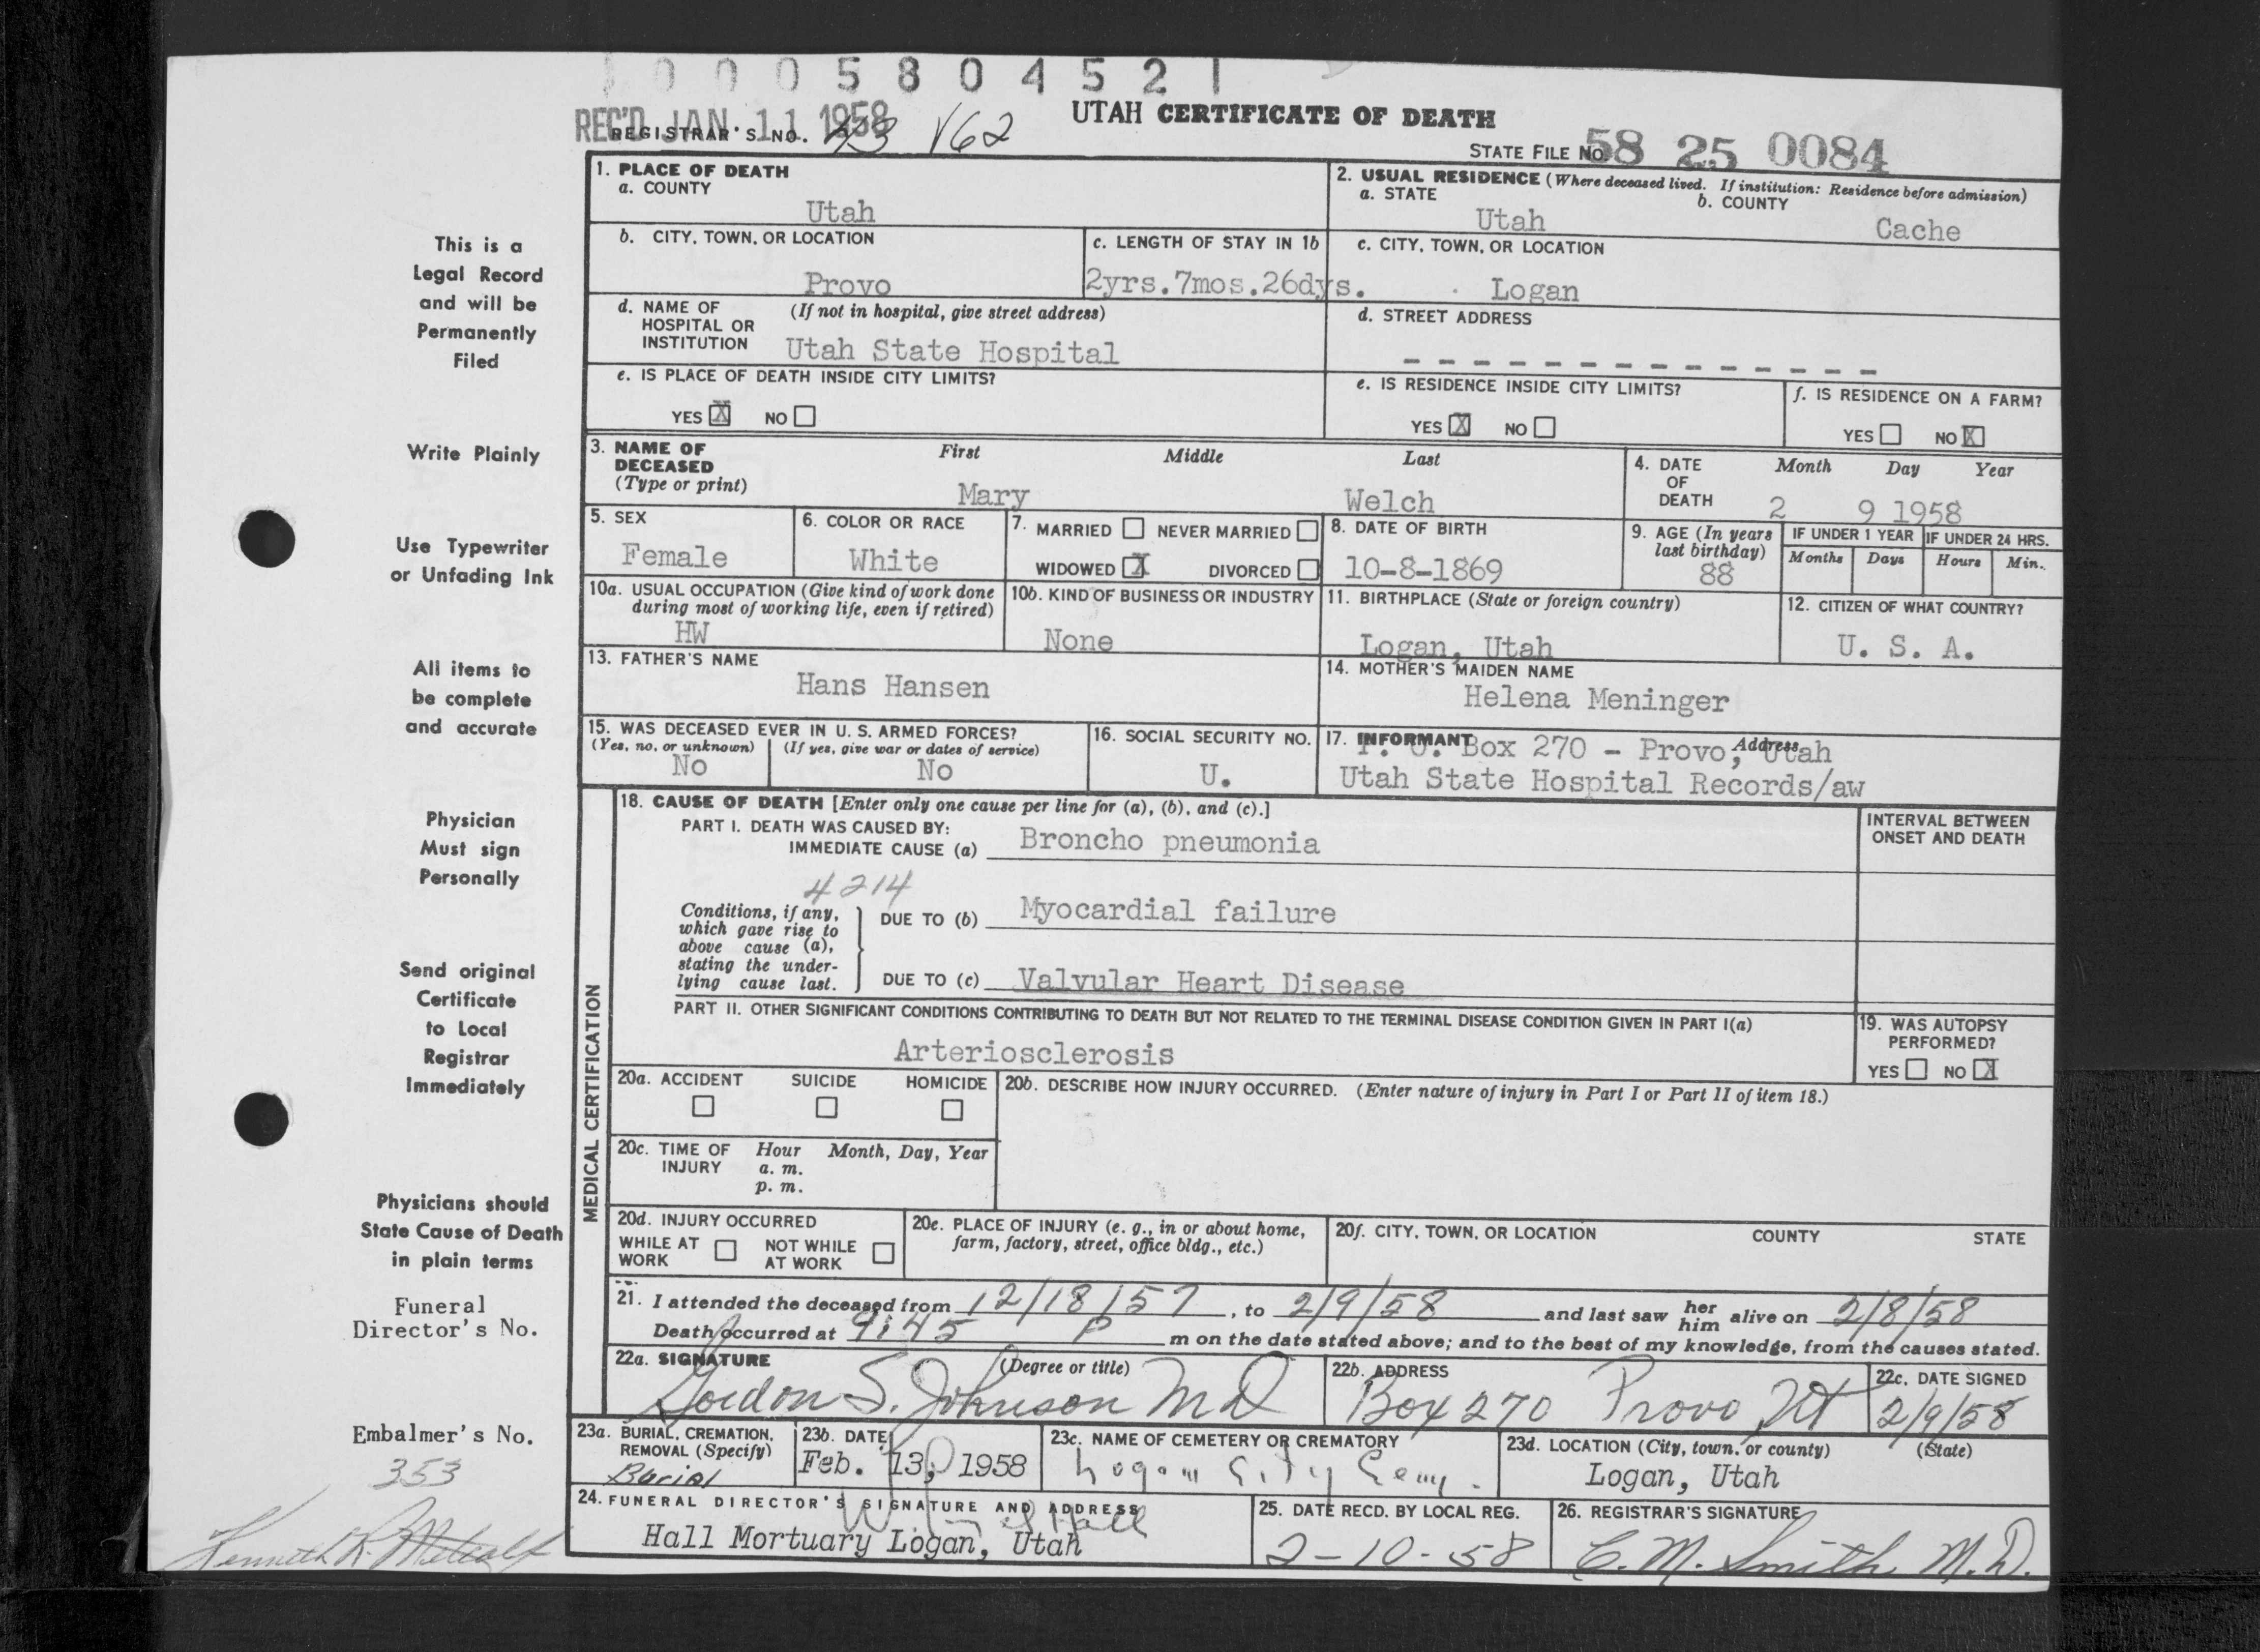 0 0 0 5 8 0 4 5 2 1
REC'D JAN 11 1958
REGISTRAR'S NO. V62
UTAH CERTIFICATE OF DEATH
STATE FILE NO. 58 25 0084
This is a
Legal Record
and will be
Permanently
Filed
Write Plainly
Use Typewriter
or Unfading Ink
All items to
be complete
and accurate
Physician
Must sign
Personally
Send original
Certificate
to Local
Registrar
Immediately
Physicians should
State Cause of Death
in plain terms
Funeral
Director's No.
Embalmer's No.
353
Kenneth R. Metcalf
1. PLACE OF DEATH
a. COUNTY
Utah
2. USUAL RESIDENCE (Where deceased lived. If institution: Residence before admission)
a. STATE b. COUNTY
Utah Cache
b. CITY, TOWN, OR LOCATION
Provo
c. LENGTH OF STAY IN 1b
2yrs.7mos.26dys.
c. CITY, TOWN, OR LOCATION
Logan
d. NAME OF (If not in hospital, give street address)
HOSPITAL OR
INSTITUTION Utah State Hospital
d. STREET ADDRESS
- - - - - - - - - - - - - -
e. IS PLACE OF DEATH INSIDE CITY LIMITS?
YES X NO
e. IS RESIDENCE INSIDE CITY LIMITS?
YES X NO
f. IS RESIDENCE ON A FARM?
YES NO X
3. NAME OF First Middle Last
DECEASED
(Type or print)
Mary Welch
4. DATE Month Day Year
OF
DEATH 2 9 1958
5. SEX
Female
6. COLOR OR RACE
White
7. MARRIED NEVER MARRIED
WIDOWED X DIVORCED
8. DATE OF BIRTH
10-8-1869
9. AGE (In years
last birthday)
88
IF UNDER 1 YEAR IF UNDER 24 HRS.
Months Days Hours Min.
10a. USUAL OCCUPATION (Give kind of work done
during most of working life, even if retired)
HW
10b. KIND OF BUSINESS OR INDUSTRY
None
11. BIRTHPLACE (State or foreign country)
Logan, Utah
12. CITIZEN OF WHAT COUNTRY?
U. S. A.
13. FATHER'S NAME
Hans Hansen
14. MOTHER'S MAIDEN NAME
Helena Meninger
15. WAS DECEASED EVER IN U. S. ARMED FORCES?
(Yes, no, or unknown) (If yes, give war or dates of service)
No No
16. SOCIAL SECURITY NO.
U.
17. INFORMANT Address
P. O. Box 270 - Provo, Utah
Utah State Hospital Records/aw
MEDICAL CERTIFICATION
18. CAUSE OF DEATH [Enter only one cause per line for (a), (b), and (c).]
PART I. DEATH WAS CAUSED BY:
IMMEDIATE CAUSE (a) Broncho pneumonia
INTERVAL BETWEEN
ONSET AND DEATH
4214
Conditions, if any,
which gave rise to
above cause (a),
stating the under-
lying cause last.
DUE TO (b) Myocardial failure
DUE TO (c) Valvular Heart Disease
PART II. OTHER SIGNIFICANT CONDITIONS CONTRIBUTING TO DEATH BUT NOT RELATED TO THE TERMINAL DISEASE CONDITION GIVEN IN PART I(a)
Arteriosclerosis
19. WAS AUTOPSY
PERFORMED?
YES NO X
20a. ACCIDENT SUICIDE HOMICIDE
20b. DESCRIBE HOW INJURY OCCURRED. (Enter nature of injury in Part I or Part II of item 18.)
20c. TIME OF Hour Month, Day, Year
INJURY a. m.
p. m.
20d. INJURY OCCURRED
WHILE AT NOT WHILE
WORK AT WORK
20e. PLACE OF INJURY (e. g., in or about home,
farm, factory, street, office bldg., etc.)
20f. CITY, TOWN, OR LOCATION COUNTY STATE
21. I attended the deceased from 12/18/57, to 2/9/58 and last saw her him alive on 2/8/58
Death occurred at 9:45 P m on the date stated above; and to the best of my knowledge, from the causes stated.
22a. SIGNATURE (Degree or title)
Gordon S. Johnson MD
22b. ADDRESS
Box 270 Provo Ut
22c. DATE SIGNED
2/9/58
23a. BURIAL, CREMATION,
REMOVAL (Specify)
Burial
23b. DATE
Feb. 13, 1958
23c. NAME OF CEMETERY OR CREMATORY
Logan City Cem.
23d. LOCATION (City, town, or county) (State)
Logan, Utah
24. FUNERAL DIRECTOR'S SIGNATURE AND ADDRESS
Hall
Hall Mortuary Logan, Utah
25. DATE RECD. BY LOCAL REG.
2-10-58
26. REGISTRAR'S SIGNATURE
C. M. Smith M.D.